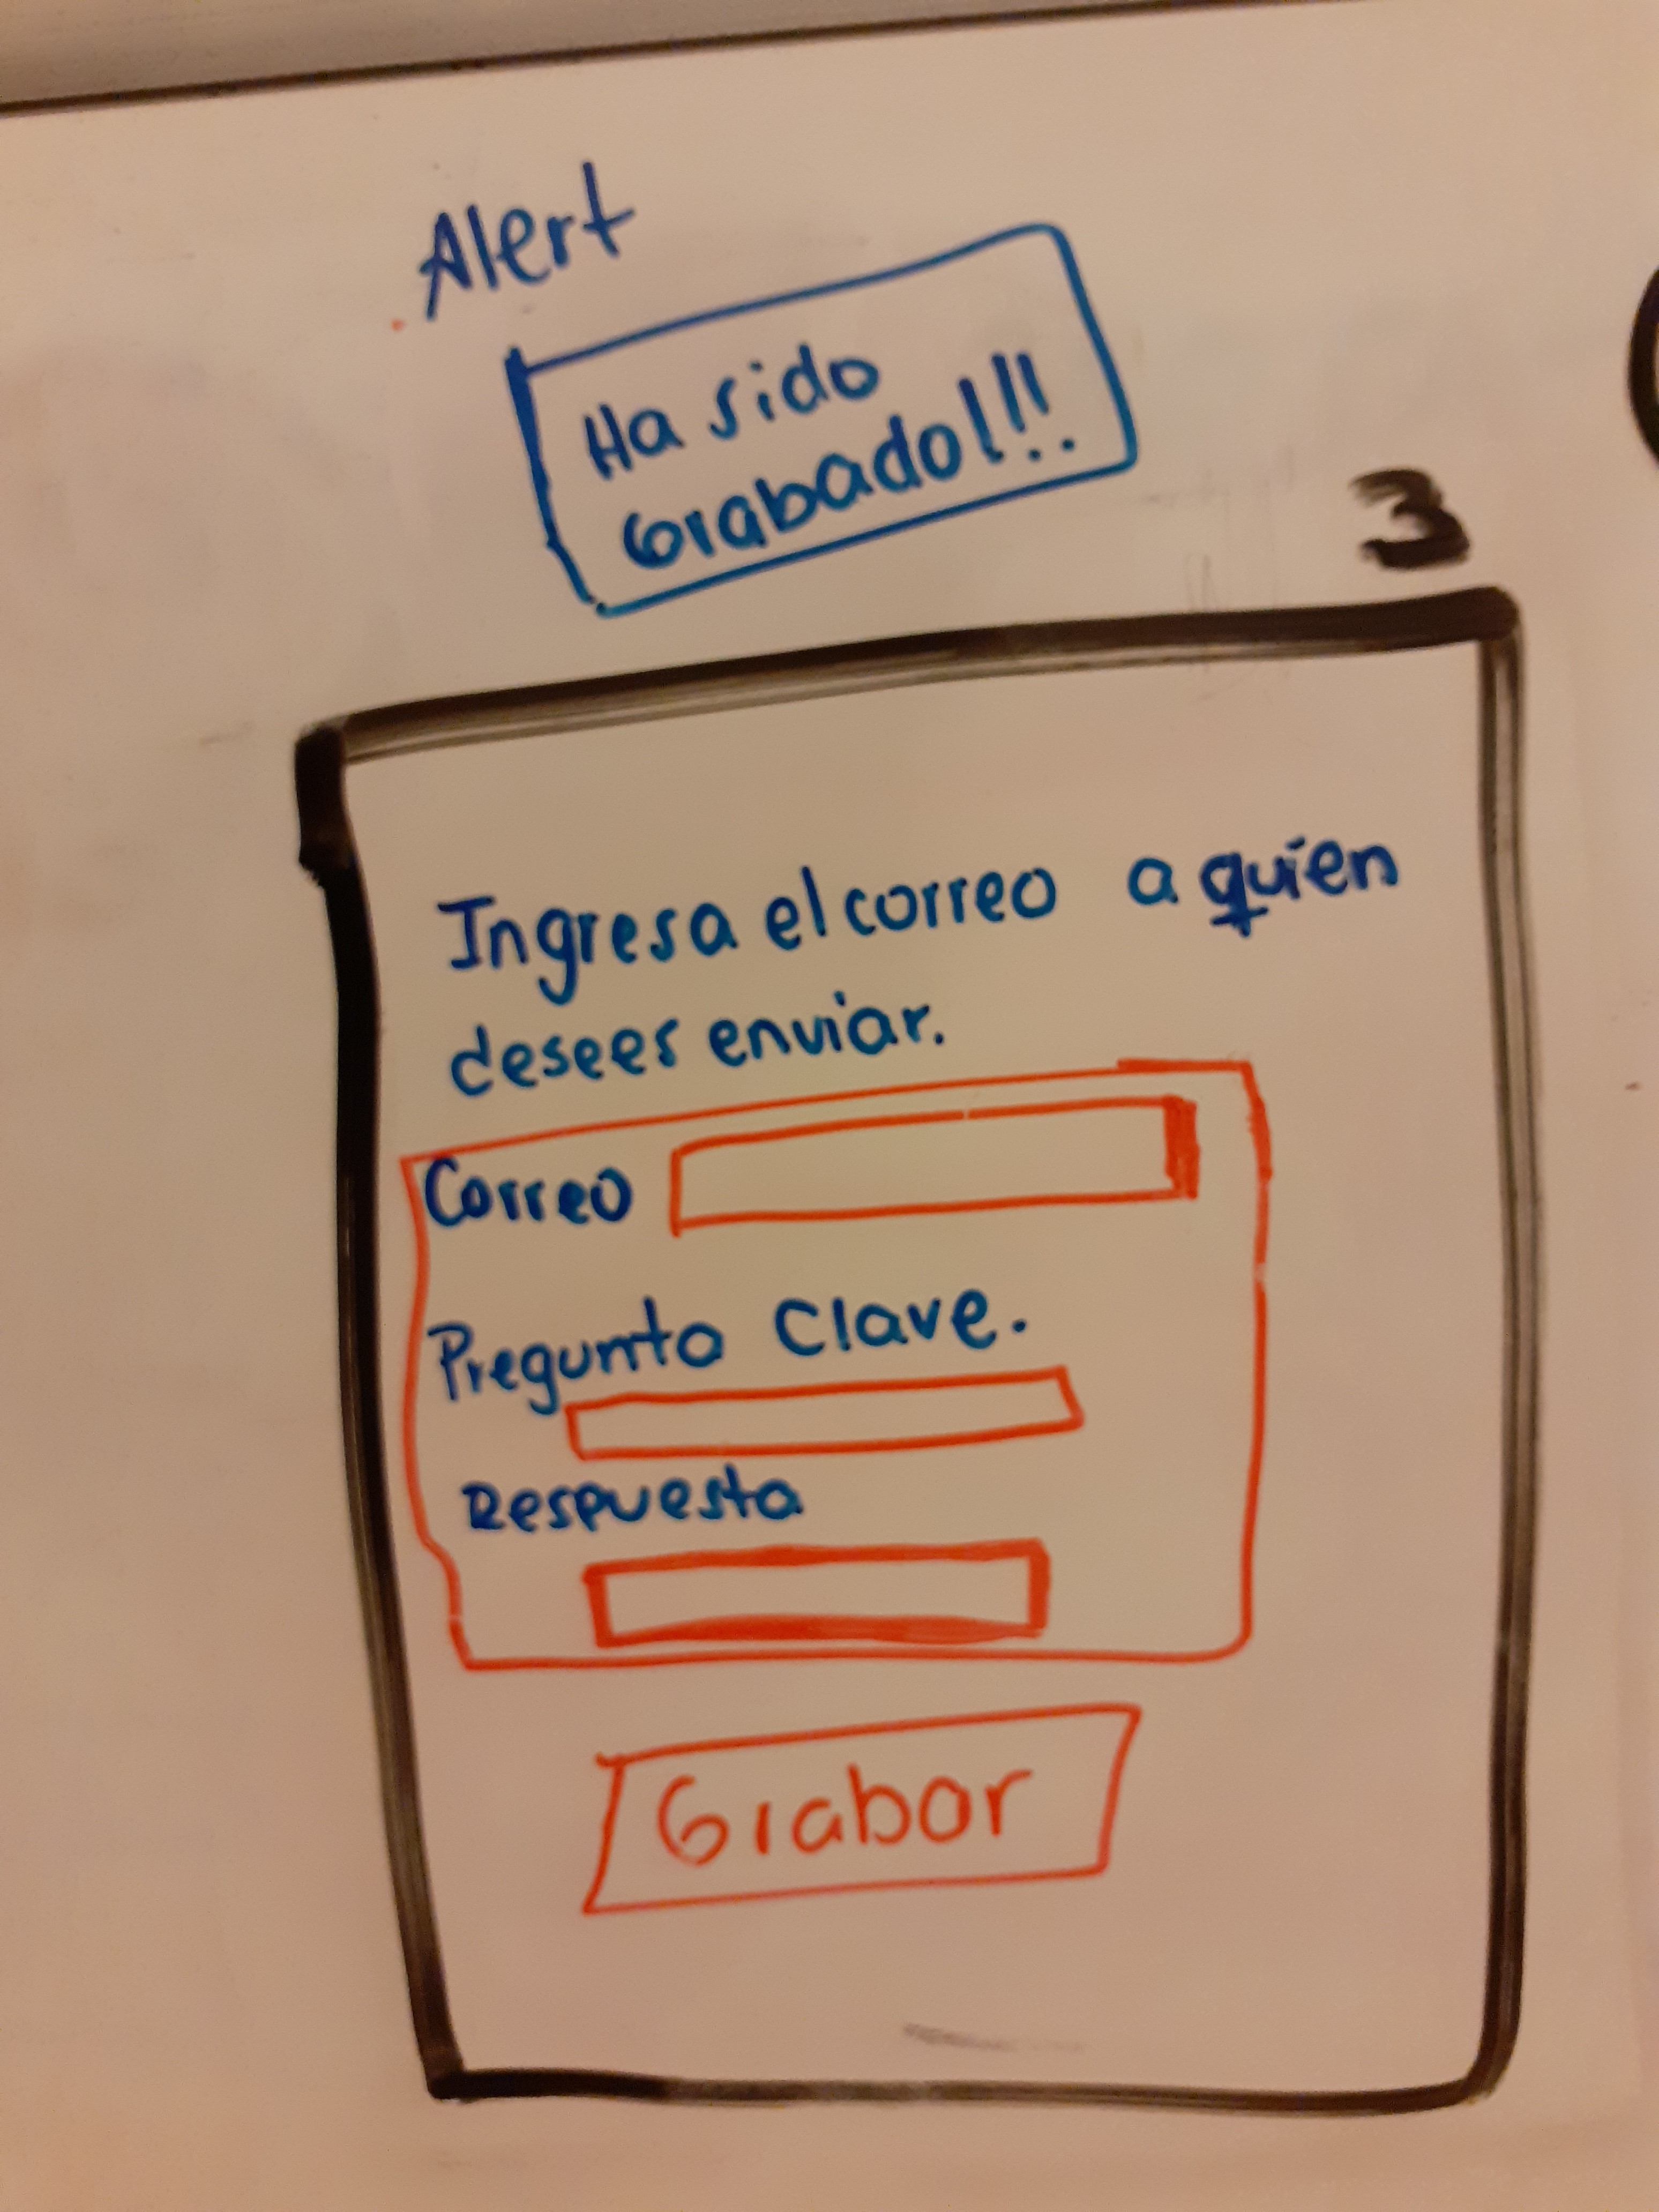 Alert
Ha sido
Grabado!!!
3
Ingresa el correo a quien
desees enviar.
Correo
Pregunta Clave.
Respuesta
Grabar